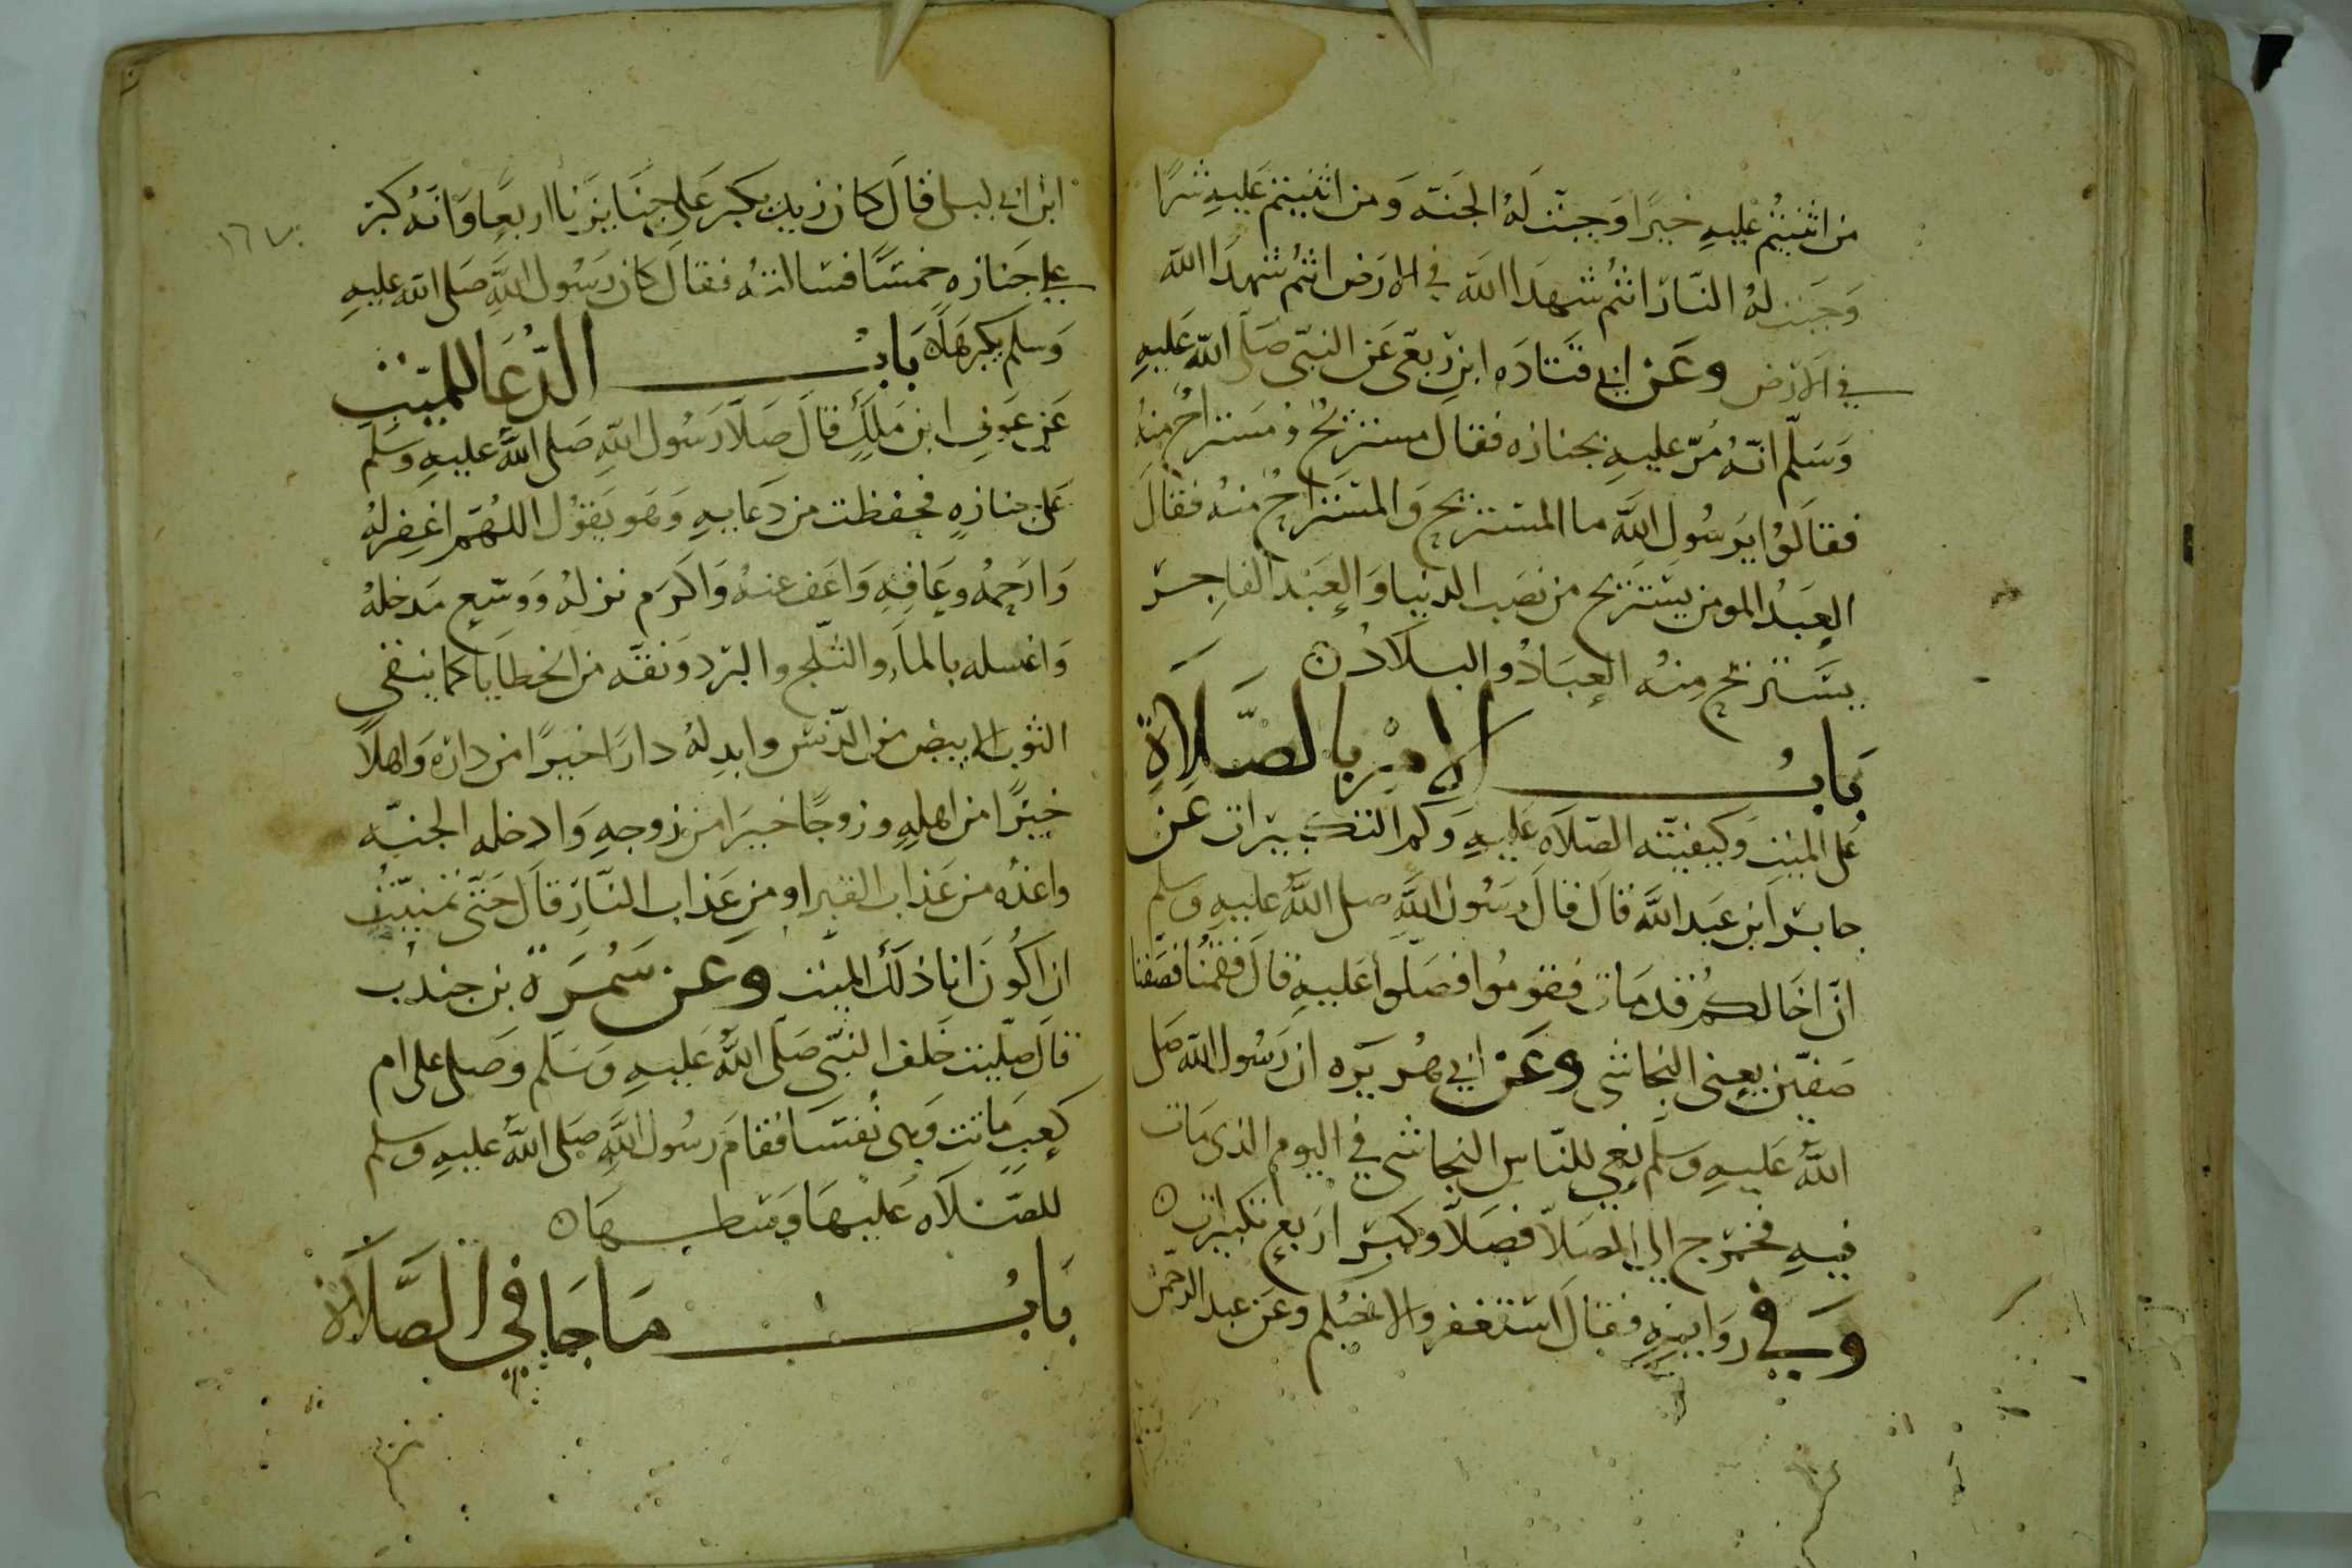 من اثنيتم عليه خيرًا وجبت له الجنه ومن اثنيتم عليه شرًا
وجبت له النار انتم شهدا الله في الارض انتم شهدا الله
في الارض وعن ابي قتاده ابن ربعي عن النبي صلى الله عليه
وسلم انه مر عليه بجنازه فقال مستريح ومستراح منه
فقالوا يرسول الله ما المستريح والمستراح منه فقال
العبد المومن يستريح من نصب الدنيا والعبد الفاجر
يستريح منه العباد والبلاد ن
باب الامر بالصلاة
على الميت وكيفيته الصلاه عليه وكم التكبيرات عن
جابر ابن عبد الله قال قال رسول الله صلى الله عليه وسلم
ان اخا لكم قد مات فقوموا فصلوا عليه قال فقمنا فصفنا
صفين يعني النجاشي وعن ابي هريره ان رسول الله صلى
الله عليه وسلم نعي للناس النجاشي في اليوم الذي مات
فيه فخرج الي المصلا فصلا وكبر اربع تكبيرات ن
وفي روايه فقال استغفروا لاخيكم وعن عبد الرحمن
ابن ابي ليلى قال كان زيد يكبر على جنايزنا اربعا وانه كبر
على جنازه خمسًا فسالته فقال كان رسول الله صلى الله عليه
وسلم يكبرها ن باب الدعا للميت
عن عوف ابن ملك قال صلا رسول الله صلى الله عليه وسلم
على جنازه فحفظت من دعايه وهو يقول اللهم اغفر له
وارحمه وعافه واعف عنه واكرم نزله ووسع مدخله
واغسله بالماء والثلج والبرد ونقه من الخطايا كما ينقى
الثوب الابيض من الدنس وابدله دارًا خيرًا من داره واهلا
خيرًا من اهله وزوجًا خيرا من زوجه وادخله الجنه
واعذه من عذاب القبر او من عذاب النار قال حتى تمنيت
ان اكون انا ذلك الميت وعن سمرة بن جندب
قال صليت خلف النبي صلى الله عليه وسلم وصلى على ام
كعب ماتت وهي نفسا فقام رسول الله صلى الله عليه وسلم
للصلاه عليها وسطها ن
باب ما جا في الصلاة